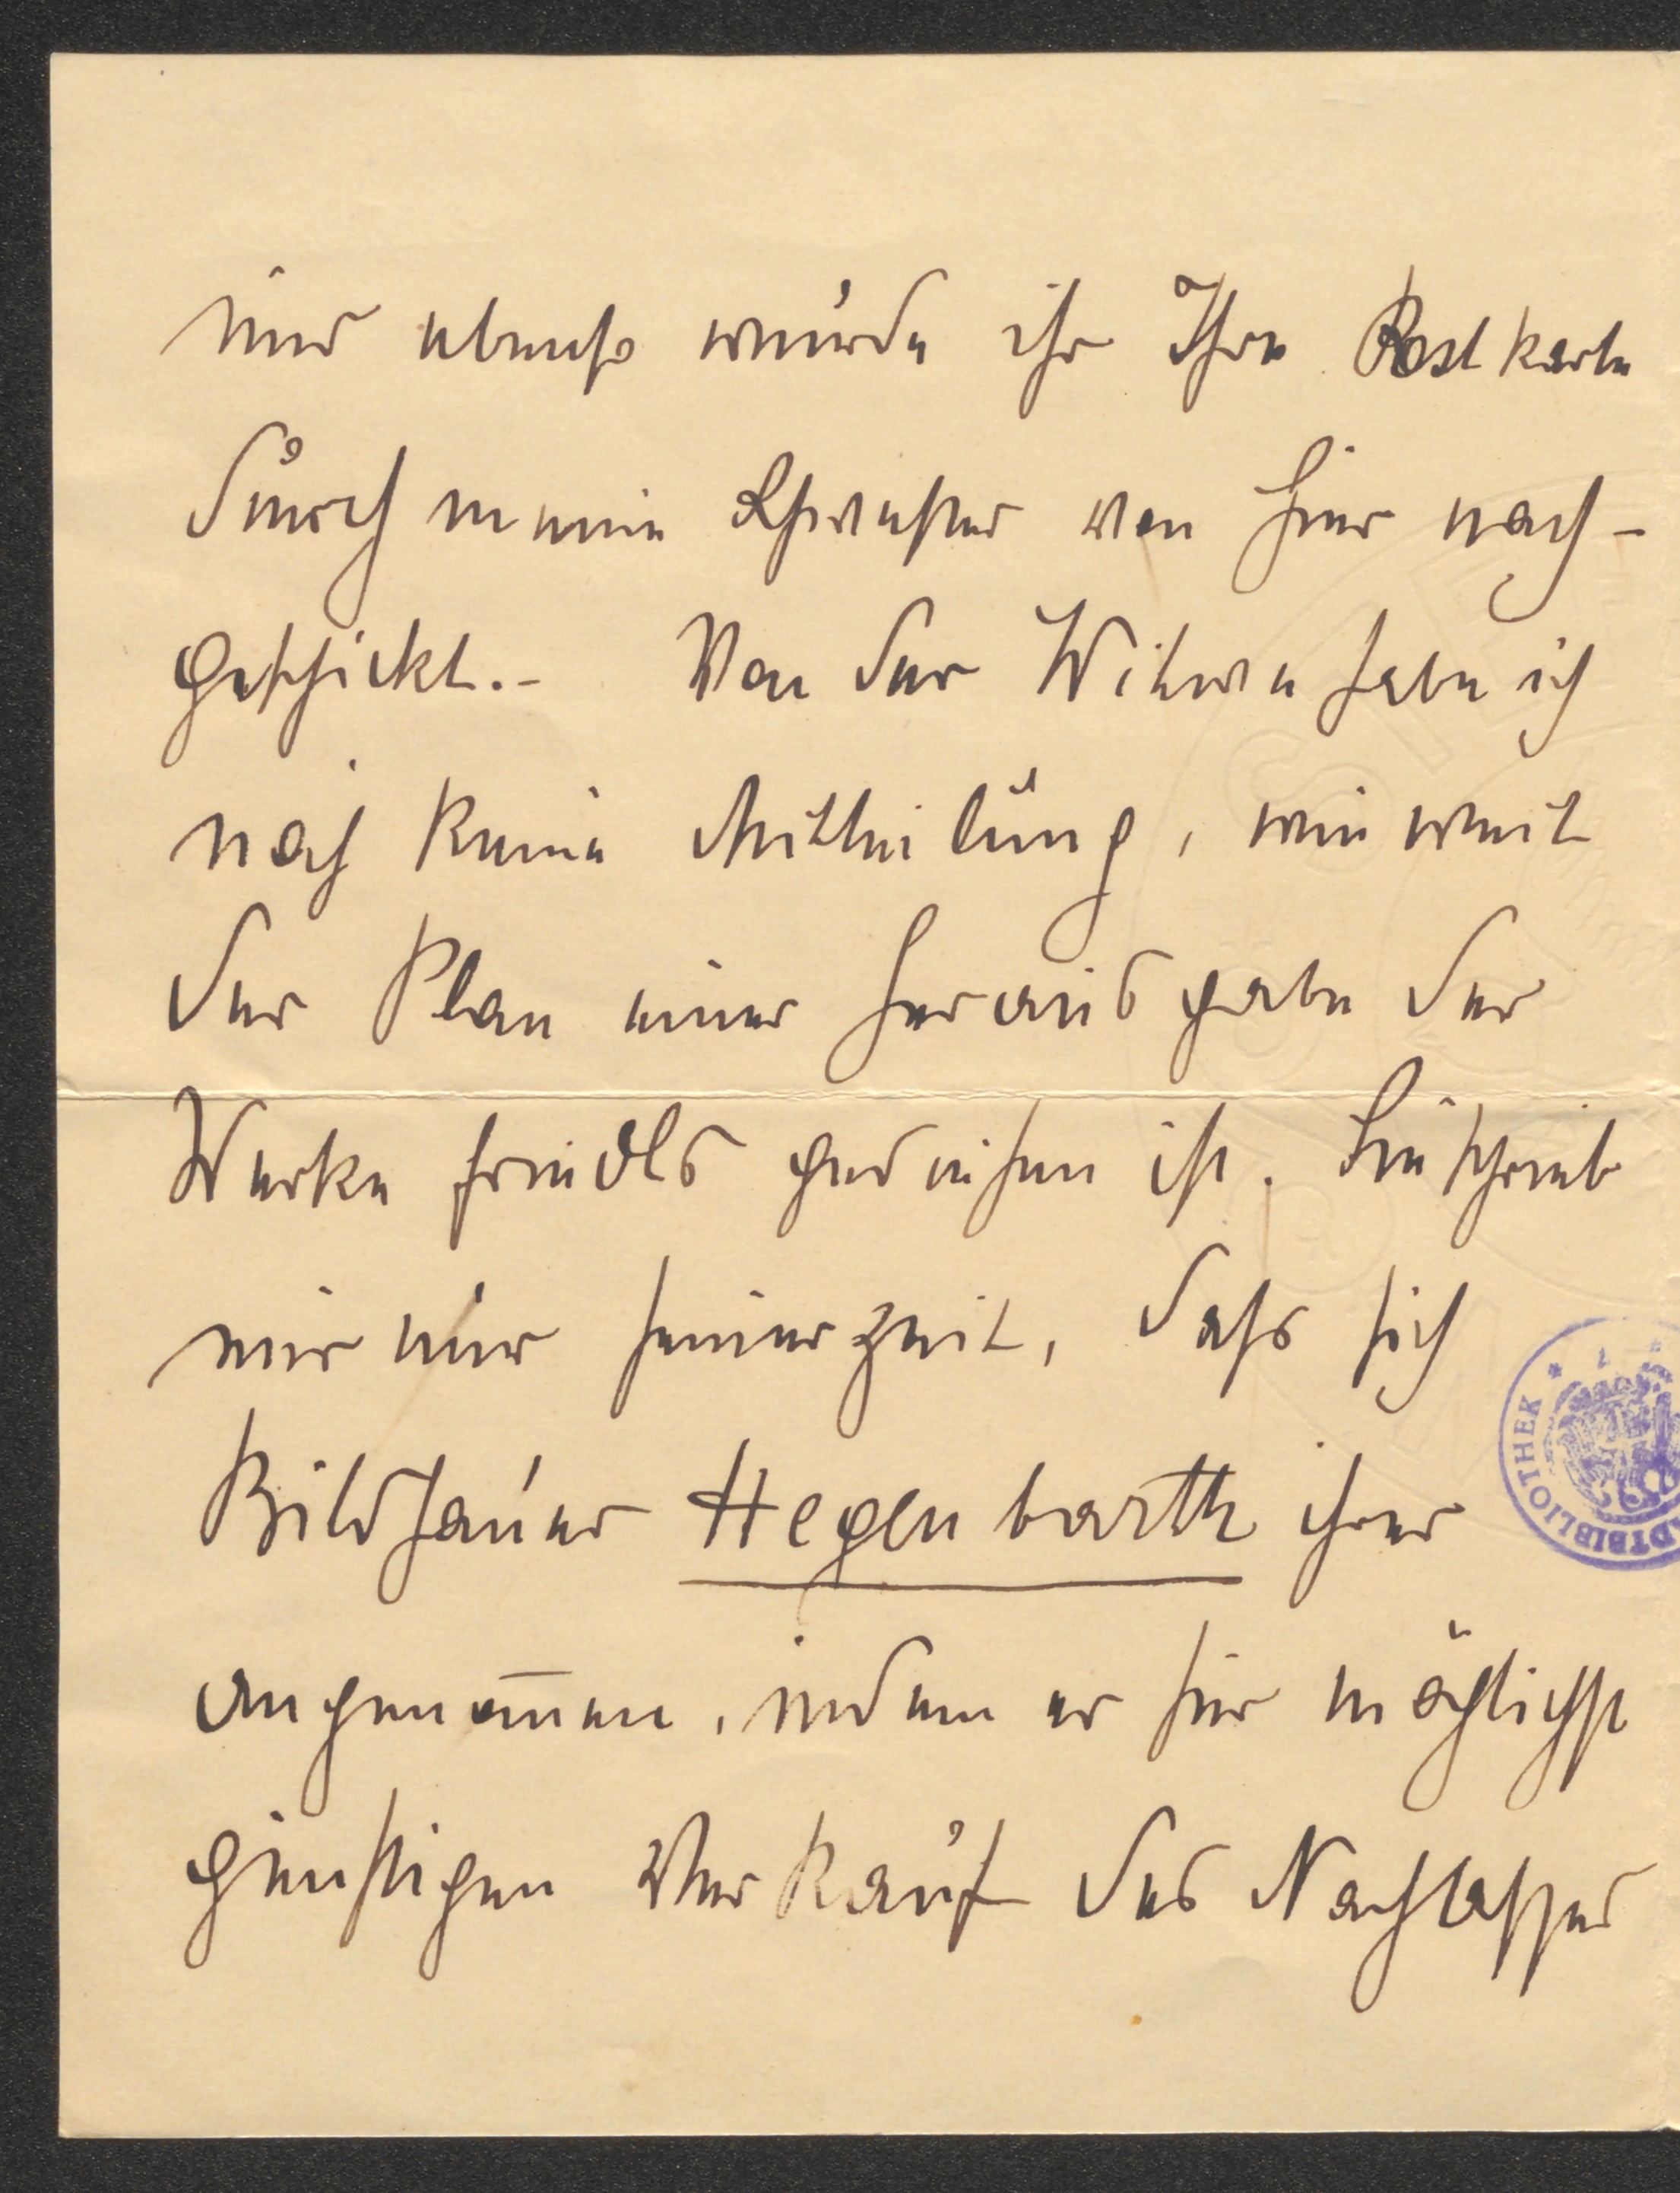 und ebenso wurde ihr Ihre Postkarte
durch meine Schwester von hier nach-
geschickt.- Von der Witwe habe ich
noch keine Mittheilung, wie weit
der Plan einer Herausgabe der
Werke Friedls gediehen ist. Sie schrieb
mir nur seinerzeit, dass sich
Bildhauer Hegenbarth ihrer
angenom̅en, indem er für möglichst
günstigen Verkauf des Nachlasses
DTBIBLIOTHEK